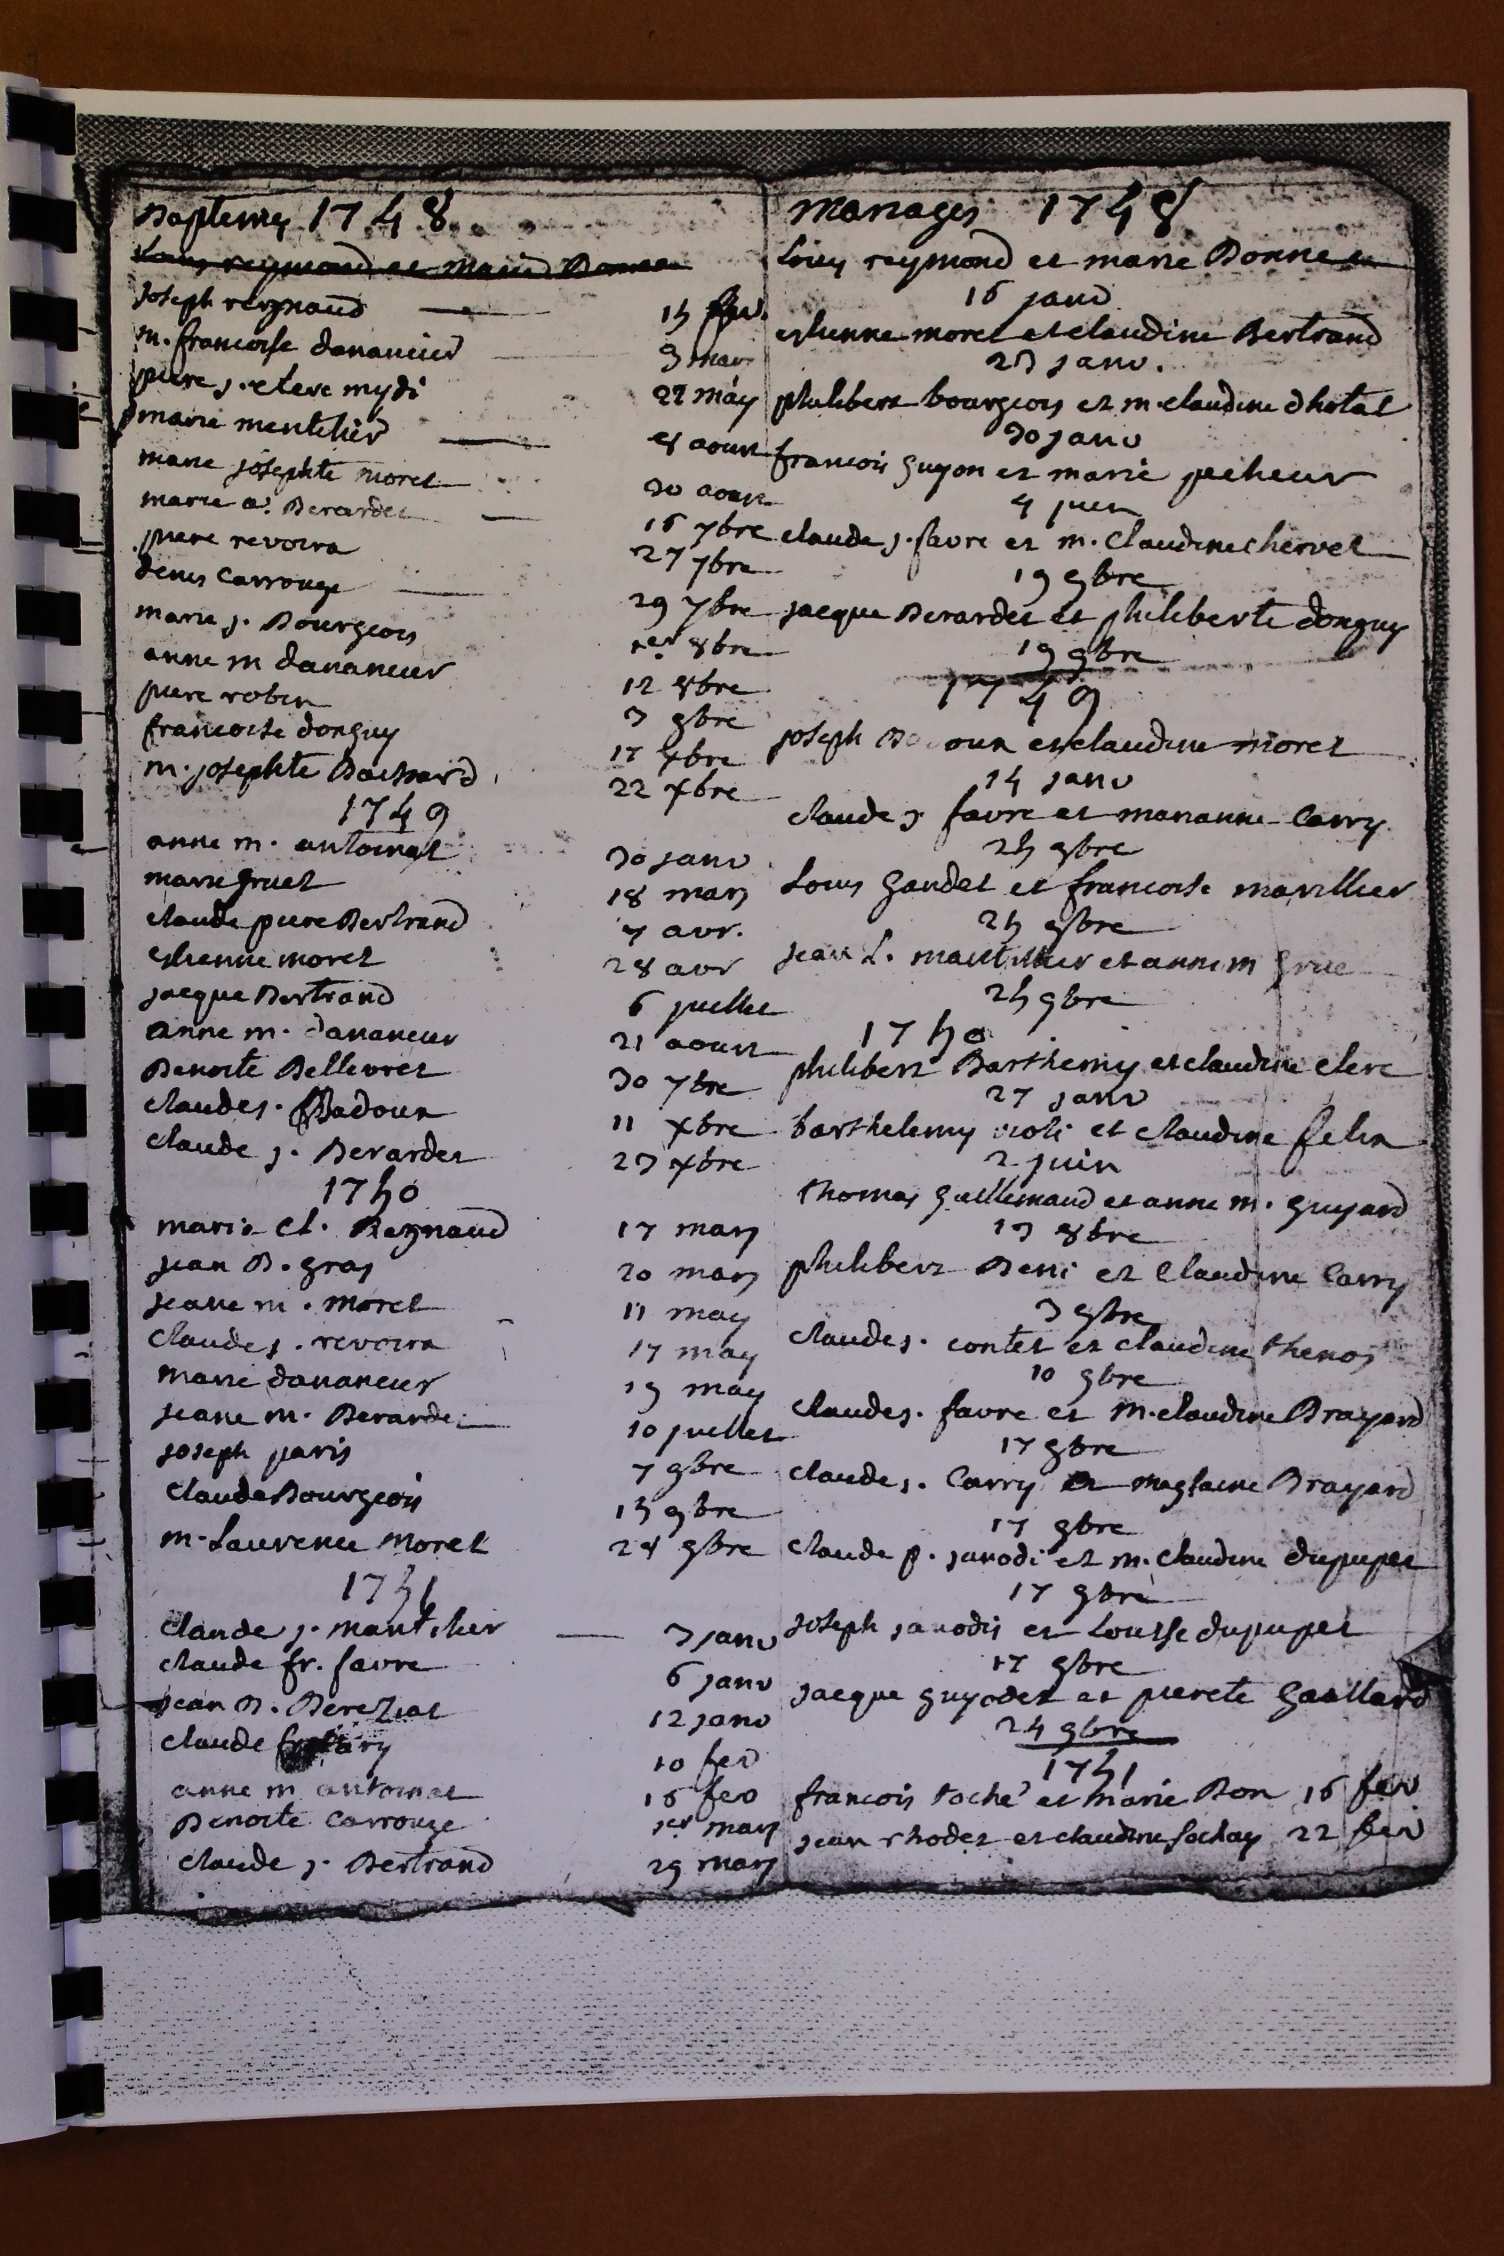 Baptemes 1748
Louis reymond et marie Donne
joseph reynaud 15 fev.
m. francoise danancier 3 mars
piere j. clerc mydi 27 may
marie mentelier 8 aoust
marie josephte moret 30 aoust
marie a. Berardet 16 7bre
piere revoira 27 7bre
denis Carrouge 29 7bre
marie j. Bourgeois 1er 8bre
anne m dananeur 12 8bre
piere robin 3 9bre
francoise donguy 17 xbre
m. josephte Bachard 22 xbre
1749
anne m. antoinat 30 janv
marie gruet 18 mars
claude piere Bertrand 7 avr.
estienne moret 28 avr
jacque Bertrand 6 juillet
anne m. dananeur 21 aoust
Benoite Bellevret 30 7bre
claude j. Badoux 11 xbre
claude j. Berardet 23 xbre
1750
marie Cl. Regnaud 17 mars
jean B. gras 20 mars
jeane m. moret 11 may
claude j. revoira 17 may
marie dananeur 19 may
jeane m. Berardet 10 juillet
joseph paris 7 9bre
claude Bourgeois 15 9bre
m. Laurence moret 28 9bre
1751
claude j. mantelier 3 janv
claude fr. favre 6 janv
jean B. Bereziat 12 janv
claude 10 fev
anne m antoinat 16 fev
Benoite Carrouge 1er mars
claude j. Bertrand 29 mars
Mariages 1748
Louis reymond et marie Donne
16 janv
estienne moret et claudine Bertrand
23 janv.
philibert bourgeois et m. claudine dhotal
30 janv
francois guyon et marie pecheur
4 juin
claude j. favre et m. Claudine chervet
19 9bre
jacque Berardet et philiberte donguy
19 9bre
1749
joseph et claudine moret
14 janv
claude j favre et marianne Carry
25 9bre
Louis gaudet et francoise marillier
25 9bre
jean L. et anne m grue
25 9bre
1750
philibert Barthemy et claudine clerc
27 janv
barthelemy violi et claudine felix
2 juin
thomas guillemaud et anne m. guyard
13 8bre
philibert Beni et Claudine Carry
3 9bre
claude j. contet et claudine thenos
10 9bre
claude j. favre et m. claudine Brayard
17 9bre
claude j. Carry et maglaine Brayard
17 9bre
claude p. janodi et m. claudine dupupet
17 9bre
joseph janodis et Louise dupupet
17 9bre
jacque guyodet et pierete gaillard
24 9bre
1751
francois taché et marie Bon 16 fev
jean rhodet et claudine sochay 22 fev